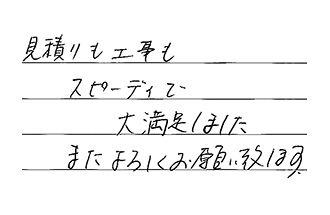 見積りも工事も
スピーディで
大満足しました
またよろしくお願い致します